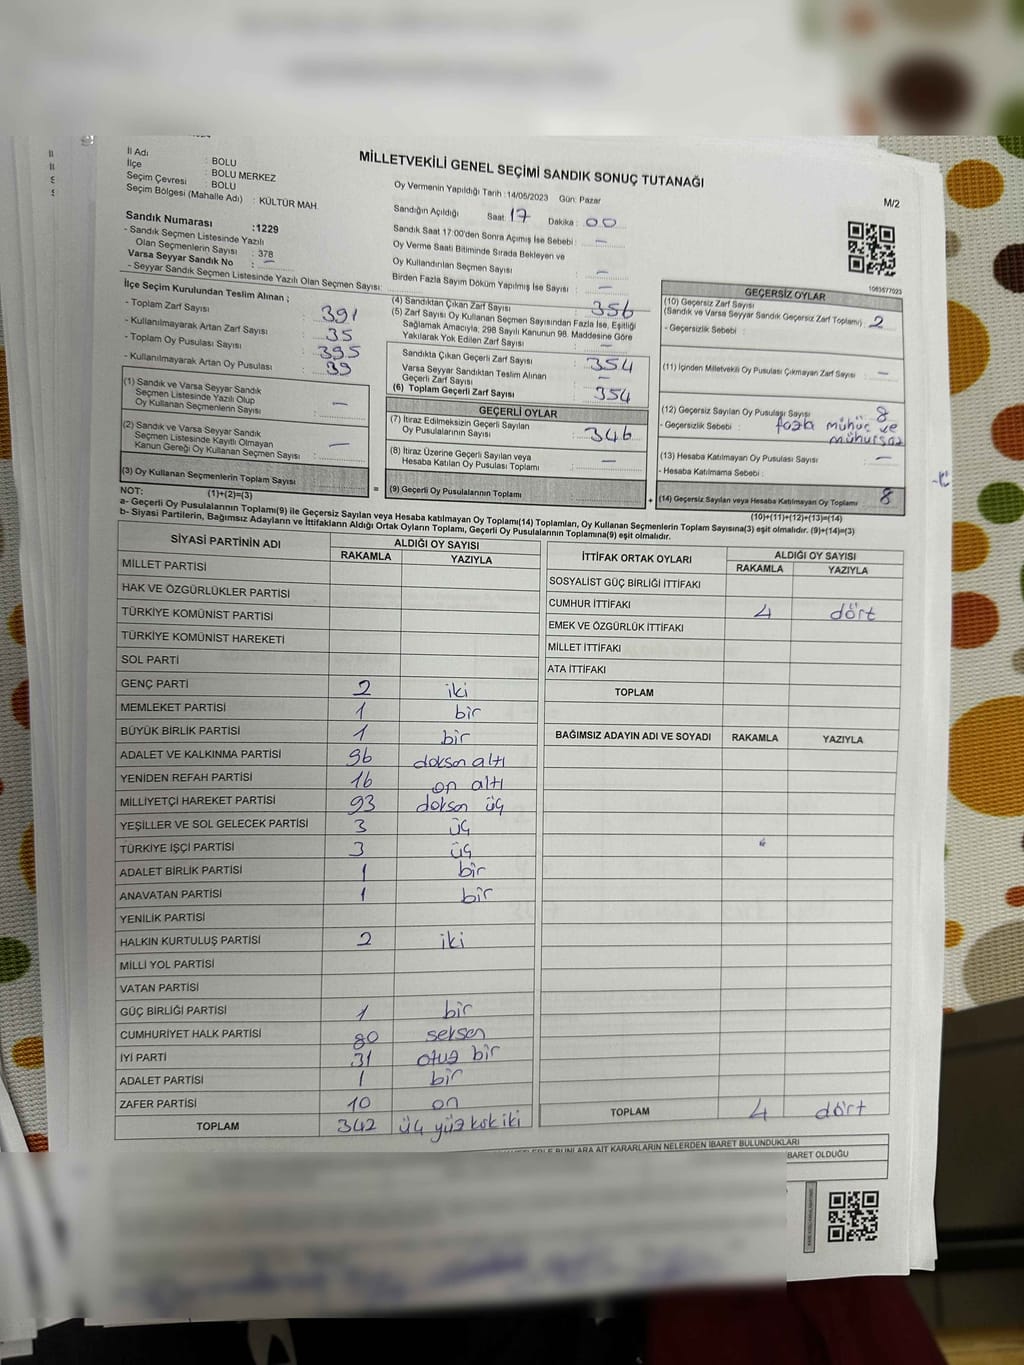 MİLLETVEKİLİ GENEL SEÇİMİ SANDIK SONUÇ TUTANAĞI
M/2
İl Adı : BOLU
İlçe : BOLU MERKEZ
Seçim Çevresi : BOLU
Seçim Bölgesi (Mahalle Adı) : KÜLTÜR MAH.
Sandık Numarası :1229
- Sandık Seçmen Listesinde Yazılı
Olan Seçmenlerin Sayısı : 378
Varsa Seyyar Sandık No : –
- Seyyar Sandık Seçmen Listesinde Yazılı Olan Seçmen Sayısı:
Oy Vermenin Yapıldığı Tarih :14/05/2023 Gün: Pazar
Sandığın Açıldığı Saat: 17 Dakika : 00
Sandık Saat 17:00'den Sonra Açımış İse Sebebi : –
Oy Verme Saati Bitiminde Sırada Bekleyen ve
Oy Kullandırılan Seçmen Sayısı : –
Birden Fazla Sayım Döküm Yapılmış İse Sayısı : –
1063577023
İlçe Seçim Kurulundan Teslim Alınan ;
- Toplam Zarf Sayısı : 391
- Kullanılmayarak Artan Zarf Sayısı : 35
- Toplam Oy Pusulası Sayısı : 395
- Kullanılmayarak Artan Oy Pusulası : 39
(1) Sandık ve Varsa Seyyar Sandık
Seçmen Listesinde Yazılı Olup
Oy Kullanan Seçmenlerin Sayısı : –
(2) Sandık ve Varsa Seyyar Sandık
Seçmen Listesinde Kayıtlı Olmayan
Kanun Gereği Oy Kullanan Seçmen Sayısı : –
(3) Oy Kullanan Seçmenlerin Toplam Sayısı
(1)+(2)=(3)
(4) Sandıktan Çıkan Zarf Sayısı : 356
(5) Zarf Sayısı Oy Kullanan Seçmen Sayısından Fazla İse, Eşitliği
Sağlamak Amacıyla, 298 Sayılı Kanunun 98. Maddesine Göre
Yakılarak Yok Edilen Zarf Sayısı : –
Sandıkta Çıkan Geçerli Zarf Sayısı : 354
Varsa Seyyar Sandıktan Teslim Alınan
Geçerli Zarf Sayısı : –
(6) Toplam Geçerli Zarf Sayısı : 354
GEÇERLİ OYLAR
(7) İtiraz Edilmeksizin Geçerli Sayılan
Oy Pusulalarının Sayısı : 346
(8) İtiraz Üzerine Geçerli Sayılan veya
Hesaba Katılan Oy Pusulası Toplamı : –
= (9) Geçerli Oy Pusulalarının Toplamı
GEÇERSİZ OYLAR
(10) Geçersiz Zarf Sayısı
(Sandık ve Varsa Seyyar Sandık Geçersiz Zarf Toplamı) : 2
- Geçersizlik Sebebi :
(11) İçinden Milletvekili Oy Pusulası Çıkmayan Zarf Sayısı : –
(12) Geçersiz Sayılan Oy Pusulası Sayısı : 8
- Geçersizlik Sebebi : fazla mühür ve
mühürsüz
(13) Hesaba Katılmayan Oy Pusulası Sayısı : –
- Hesaba Katılmama Sebebi :
+ (14) Geçersiz Sayılan veya Hesaba Katılmayan Oy Toplamı : 8
(10)+(11)+(12)+(13)=(14)
NOT:
a- Geçerli Oy Pusulalarının Toplamı(9) ile Geçersiz Sayılan veya Hesaba katılmayan Oy Toplamı(14) Toplamları, Oy Kullanan Seçmenlerin Toplam Sayısına(3) eşit olmalıdır. (9)+(14)=(3)
b- Siyasi Partilerin, Bağımsız Adayların ve İttifakların Aldığı Ortak Oyların Toplamı, Geçerli Oy Pusulalarının Toplamına(9) eşit olmalıdır.
SİYASİ PARTİNİN ADI ALDIĞI OY SAYISI
RAKAMLA YAZIYLA
MİLLET PARTİSİ
HAK VE ÖZGÜRLÜKLER PARTİSİ
TÜRKİYE KOMÜNİST PARTİSİ
TÜRKİYE KOMÜNİST HAREKETİ
SOL PARTİ
GENÇ PARTİ 2 iki
MEMLEKET PARTİSİ 1 bir
BÜYÜK BİRLİK PARTİSİ 1 bir
ADALET VE KALKINMA PARTİSİ 96 doksan altı
YENİDEN REFAH PARTİSİ 16 on altı
MİLLİYETÇİ HAREKET PARTİSİ 93 doksan üç
YEŞİLLER VE SOL GELECEK PARTİSİ 3 üç
TÜRKİYE İŞÇİ PARTİSİ 3 üç
ADALET BİRLİK PARTİSİ 1 bir
ANAVATAN PARTİSİ 1 bir
YENİLİK PARTİSİ
HALKIN KURTULUŞ PARTİSİ 2 iki
MİLLİ YOL PARTİSİ
VATAN PARTİSİ
GÜÇ BİRLİĞİ PARTİSİ 1 bir
CUMHURİYET HALK PARTİSİ 80 seksen
İYİ PARTİ 31 otuz bir
ADALET PARTİSİ 1 bir
ZAFER PARTİSİ 10 on
TOPLAM 342 üç yüz kırk iki
İTTİFAK ORTAK OYLARI ALDIĞI OY SAYISI
RAKAMLA YAZIYLA
SOSYALİST GÜÇ BİRLİĞİ İTTİFAKI
CUMHUR İTTİFAKI 4 dört
EMEK VE ÖZGÜRLÜK İTTİFAKI
MİLLET İTTİFAKI
ATA İTTİFAKI
TOPLAM
BAĞIMSIZ ADAYIN ADI VE SOYADI RAKAMLA YAZIYLA
TOPLAM 4 dört
BUNLARA AİT KARARLARIN NELERDEN İBARET BULUNDUKLARI
BARET OLDUĞU